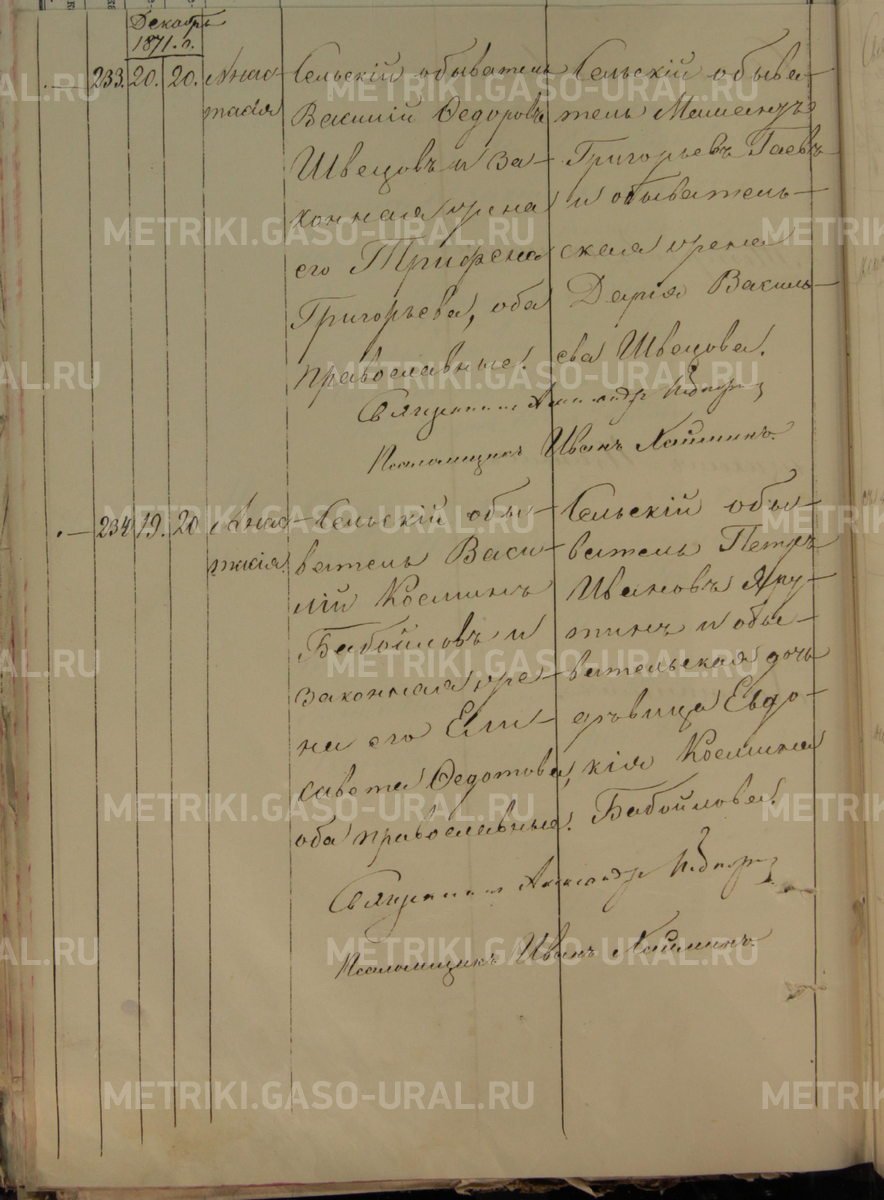 Декабрь
1871. г.
233. 20. 20. Анас-
тасія
Сельскій обыватель
Василій Ѳедоровъ
Швецовъ и за-
конная жена
его Трифена
Григорьева, оба
православные.
Сельскій обыва-
тель Мамантъ
Григорьевъ Гаевъ
и обыватель-
ская жена
Дарія Василь-
ева Швецова.
Священникъ Александръ
Псаломщикъ Иванъ Хайминъ.
234 19. 20 Анас-
тасія.
Сельскій обы-
ватель Васи-
лій Косминъ
Бабойловъ и
законная же-
на его Ели-
савета Ѳедотова,
оба православные.
Сельскій обы-
ватель Петръ
Ивановъ Яру-
тинъ и обы-
вательская дочь
дѣвица Евдо-
кія Космина
Бабойлова.
Священникъ Александръ
Псаломщикъ Иванъ Хайминъ.
METRIKI.GASO-URAL.RU